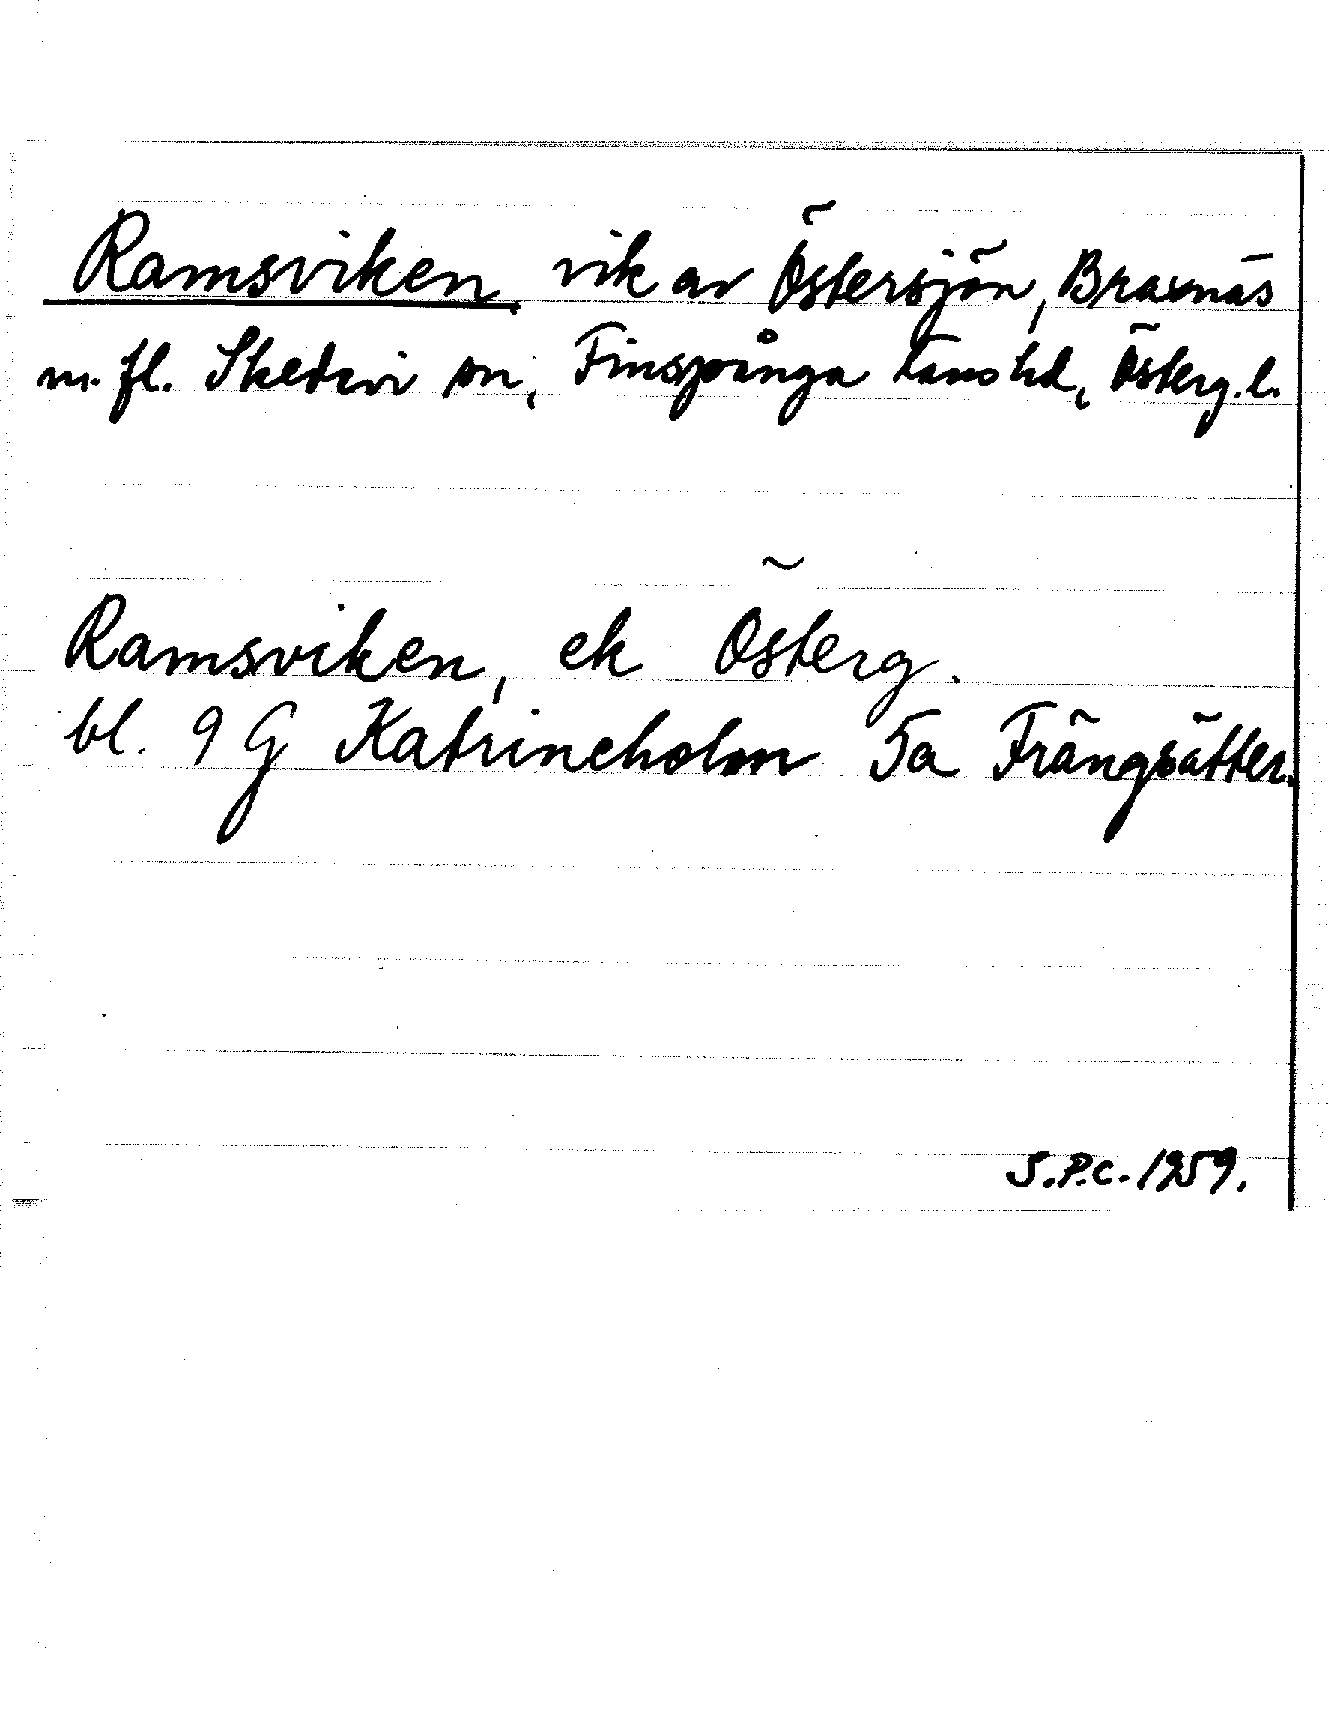 Ramsviken vik av Östersjön, Braxnäs
m. fl. Skedevi sn, Finspånga läns hd, Österg. l.
Ramsviken, ek Österg.
bl. 9 G Katrineholm 5a Frängsätter.
S.P.C. 1959.